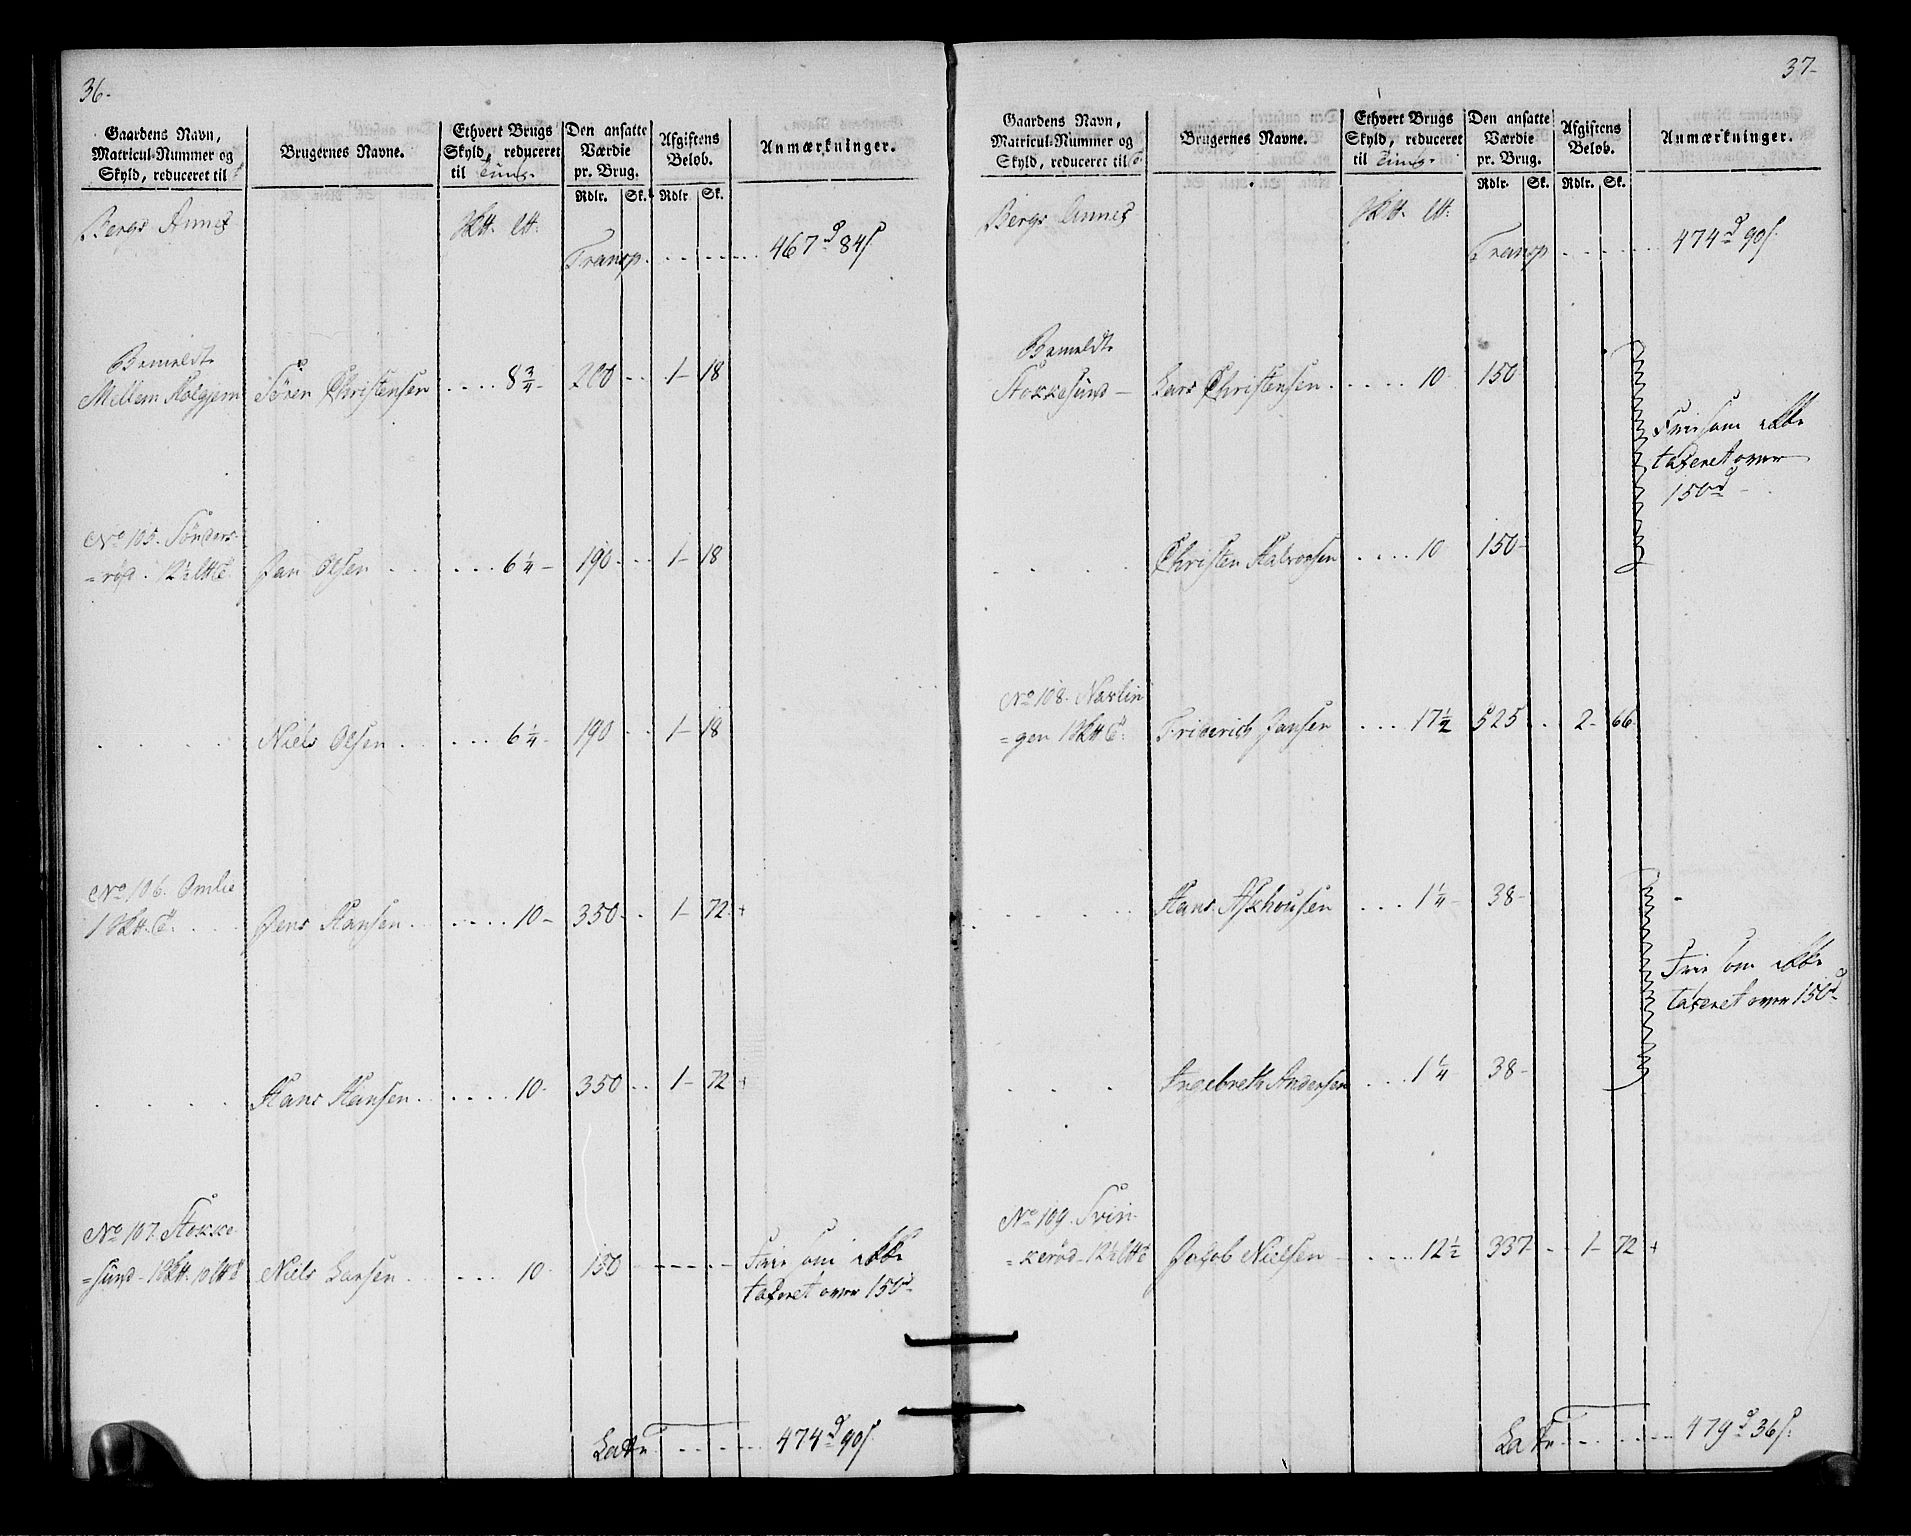 36.
Gaardens Navn, Matricul-Nummer og Skyld, reduceret til
Brugernes Navne.
Ethvert Brugs Skyld, reduceret til Tung.
Den ansatte Værdie pr. Brug.
Afgiftens Beløb.
Anmærkninger.
Rdlr. Sk. Rdlr. Sk.
Bergs Annex
Transp. 467 84
Bemeldte
Mellem Holgjem Søren Christensen 8 3/4 200 1 18
No 105. Sönders
=rød. 12½ Jan Olsen 6 1/4 190 1 18
Niels Olsen 6 1/4 190 1 18
No 106. Omlie
1 Jens Hansen 10 350 1 72 +
Hans Hansen 10 350 1 72 +
No 107. Stokke
=sund 10 Niels Larsen 10 150 Frie som ikke
taxeret over 150
Latr. 474 90
37-
Gaardens Navn, Matricul-Nummer og Skyld, reduceret til
Brugernes Navne.
Ethvert Brugs Skyld, reduceret til Tung.
Den ansatte Værdie pr. Brug.
Afgiftens Beløb.
Anmærkninger.
Rdlr. Sk. Rdlr. Sk.
Bergs Annex
Transp 474 90
Bemeldte
Stokkesund Lars Christensen 10 150
Frie som ikke
taxeret over
150
Christen Halvorsen 10 150
No 108. Navlin
=gen 1 Friderich Jansen 17 1/2 525 2 66
Hans Askhousen 1 1/4 38
Frie som ikke
taxeret over 150
Ingebreth Andersen 1 1/4 38
No 109. Svin
=kerød 12½ Jakob Nielsen 12 1/2 337 1 72 +
Latr. 479 36